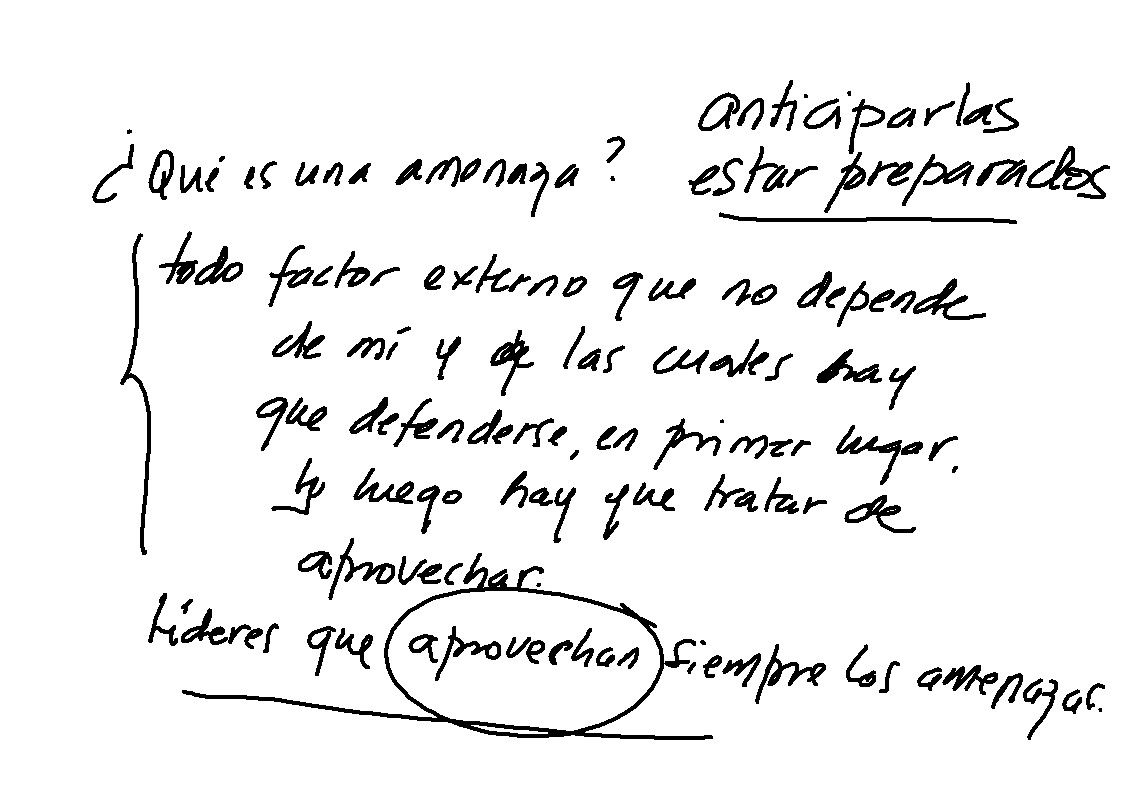 anticiparlas
¿Qué es una amenaza? estar preparados
todo factor externo que no depende
de mí y de las cuales hay
que defenderse, en primer lugar.
y luego hay que tratar de
aprovechar.
Líderes que aprovechan siempre los amenazas.